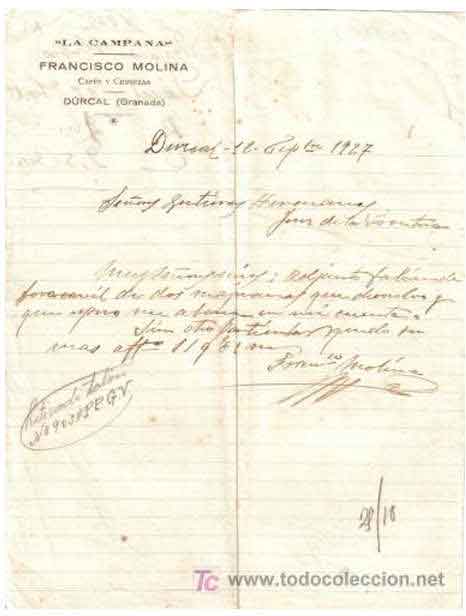 "LA CAMPANA"
FRANCISCO MOLINA
CAFÉS Y CERVEZAS
DÚRCAL (Granada)
Durcal 12 Spbre 1927
Señores Gutierrez Hermanos
Jerez de la Frontera
Muy Señores mios: Adjunto talón de
ferrocarril de dos que devuelvo y
que espero me abonen en mi cuenta.
Sin otro particular quedo su
mas affmo
Franco Molina
Retirando talón
29/10
TC www.todocoleccion.net